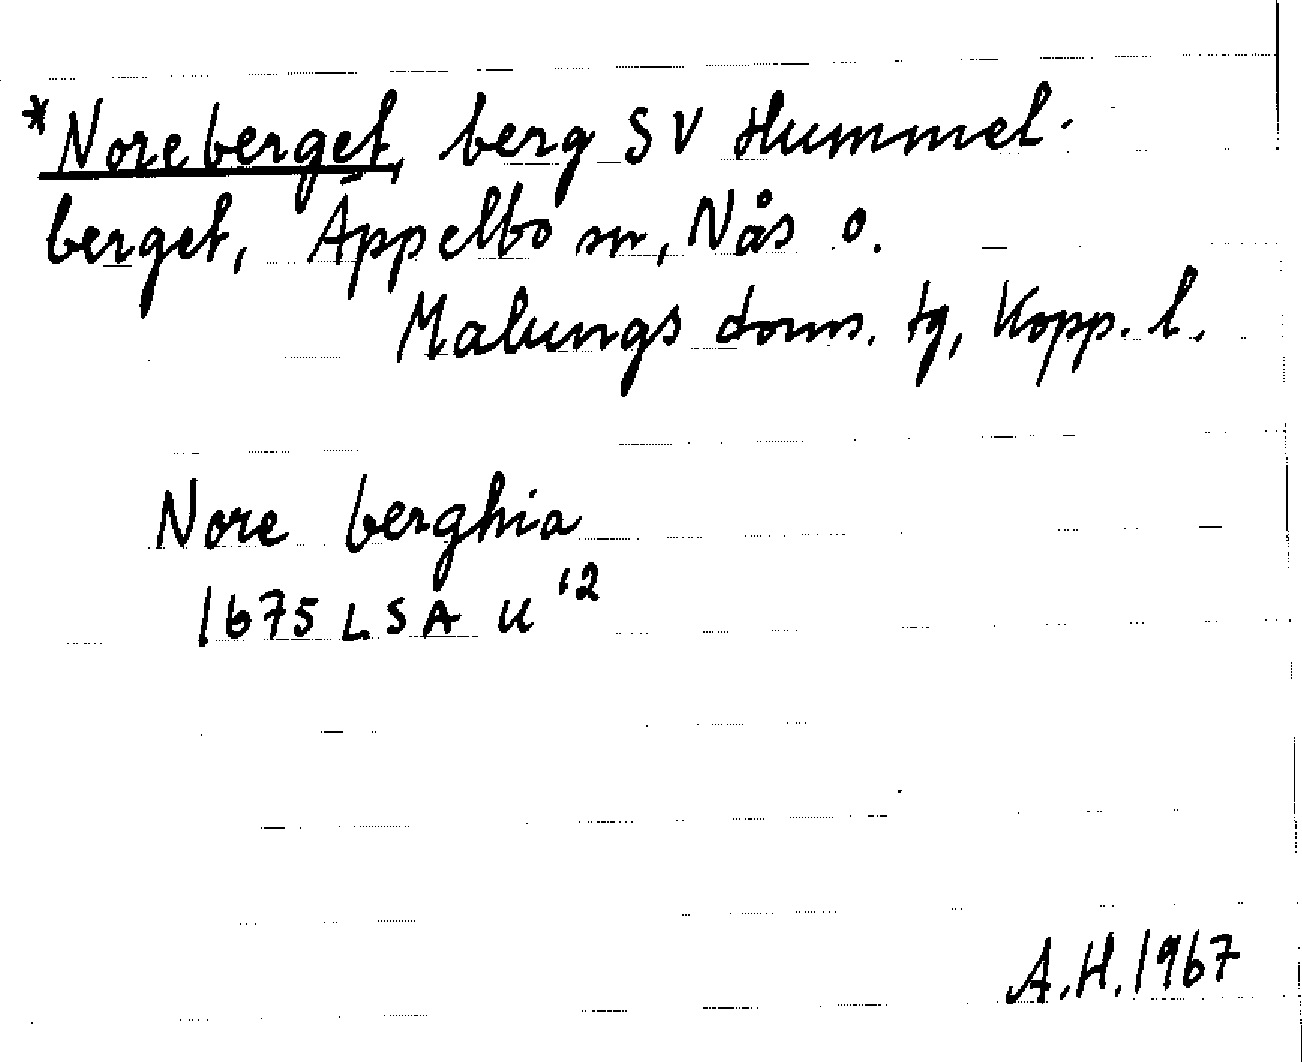 *Noreberget, berg SV Hummel-
berget, Äppelbo sn, Nås o.
Malungs doms. tg, Kopp. l.
Nore berghia
1675 LSA U '2
A.H. 1967